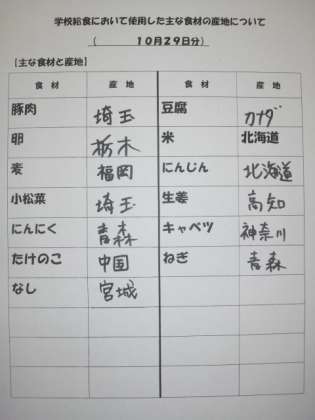 学校給食において使用した主な食材の産地について
（　　　１０月２９日分）
【主な食材と産地】
食 材 産 地 食 材 産 地
豚肉 埼玉 豆腐 カナダ
卵 栃木 米 北海道
麦 福岡 にんじん 北海道
小松菜 埼玉 生姜 高知
にんにく 青森 キャベツ 神奈川
たけのこ 中国 ねぎ 青森
なし 宮城